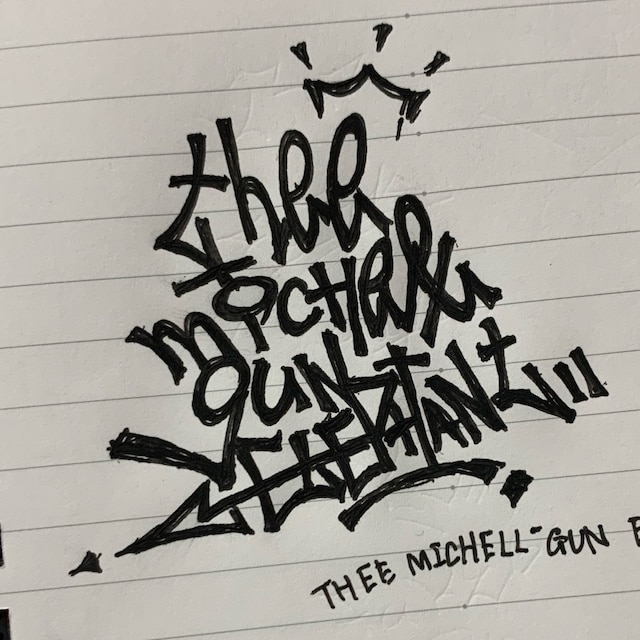 thee
michell
gun
ELEPHANT
THEE MICHELL-GUN E